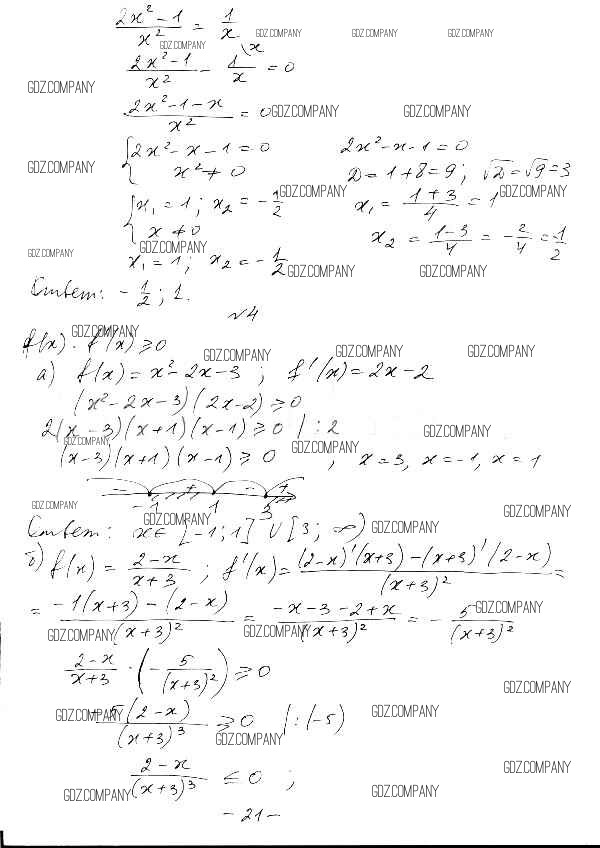 (2x² - 1)/x² = 1/x
GDZ.COMPANY GDZ.COMPANY GDZ.COMPANY GDZ.COMPANY
(2x² - 1)/x² - 1\x/x = 0
GDZ.COMPANY
(2x² - 1 - x)/x² = 0 GDZ.COMPANY GDZ.COMPANY
{ 2x² - x - 1 = 0 2x² - x - 1 = 0
GDZ.COMPANY x² ≠ 0 D = 1 + 8 = 9; √D = √9 = 3
{ x₁ = 1; x₂ = -1/2 GDZ.COMPANY x₁ = (1 + 3)/4 = 1 GDZ.COMPANY
x ≠ 0 x₂ = (1 - 3)/4 = -2/4 = -1/2
GDZ.COMPANY GDZ.COMPANY
x₁ = 1; x₂ = -1/2 GDZ.COMPANY GDZ.COMPANY
Ответ: -1/2; 1.
№4
GDZ.COMPANY
f(x) · f'(x) ≥ 0 GDZ.COMPANY GDZ.COMPANY GDZ.COMPANY
а) f(x) = x² - 2x - 3; f'(x) = 2x - 2
(x² - 2x - 3)(2x - 2) ≥ 0
2(x - 3)(x + 1)(x - 1) ≥ 0 | : 2 GDZ.COMPANY
GDZ.COMPANY GDZ.COMPANY
(x - 3)(x + 1)(x - 1) ≥ 0; x = 3, x = -1, x = 1
- + - +
GDZ.COMPANY -1 1 3 GDZ.COMPANY
GDZ.COMPANY
Ответ: x ∈ [-1; 1] ∪ [3; ∞) GDZ.COMPANY
б) f(x) = (2 - x)/(x + 3); f'(x) = ((2 - x)'(x + 3) - (x + 3)'(2 - x))/(x + 3)² =
= (-1(x + 3) - (2 - x))/(x + 3)² = (-x - 3 - 2 + x)/(x + 3)² = -5/(x + 3)² GDZ.COMPANY
GDZ.COMPANY GDZ.COMPANY
(2 - x)/(x + 3) · (-5/(x + 3)²) ≥ 0
GDZ.COMPANY
GDZ.COMPANY -5(2 - x)/(x + 3)³ ≥ 0 | : (-5) GDZ.COMPANY
GDZ.COMPANY
(2 - x)/(x + 3)³ ≤ 0; GDZ.COMPANY
GDZ.COMPANY GDZ.COMPANY
- 21 -